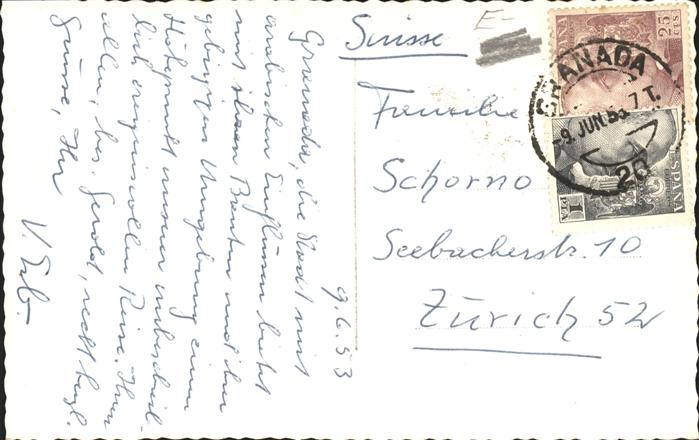 9.6.53
Granada, die Stadt mit
arabischen Einflüssen bietet
mit ihren Bauten und der
gebirgigen Umgebung einen
Höhepunkt unserer unbeschreib-
lich ereignisvollen Reise. Ihnen
allen, bes. Gerold, recht herzl.
Grüsse, Ihr
V. Erb.
Suisse
E-
Familie
Schorno
Seebacherstr. 10
Zürich 52
GRANADA
-9. JUN. 53. 7 T.
26
ESPAÑA
25 CTS
ESPAÑA
1 PTA